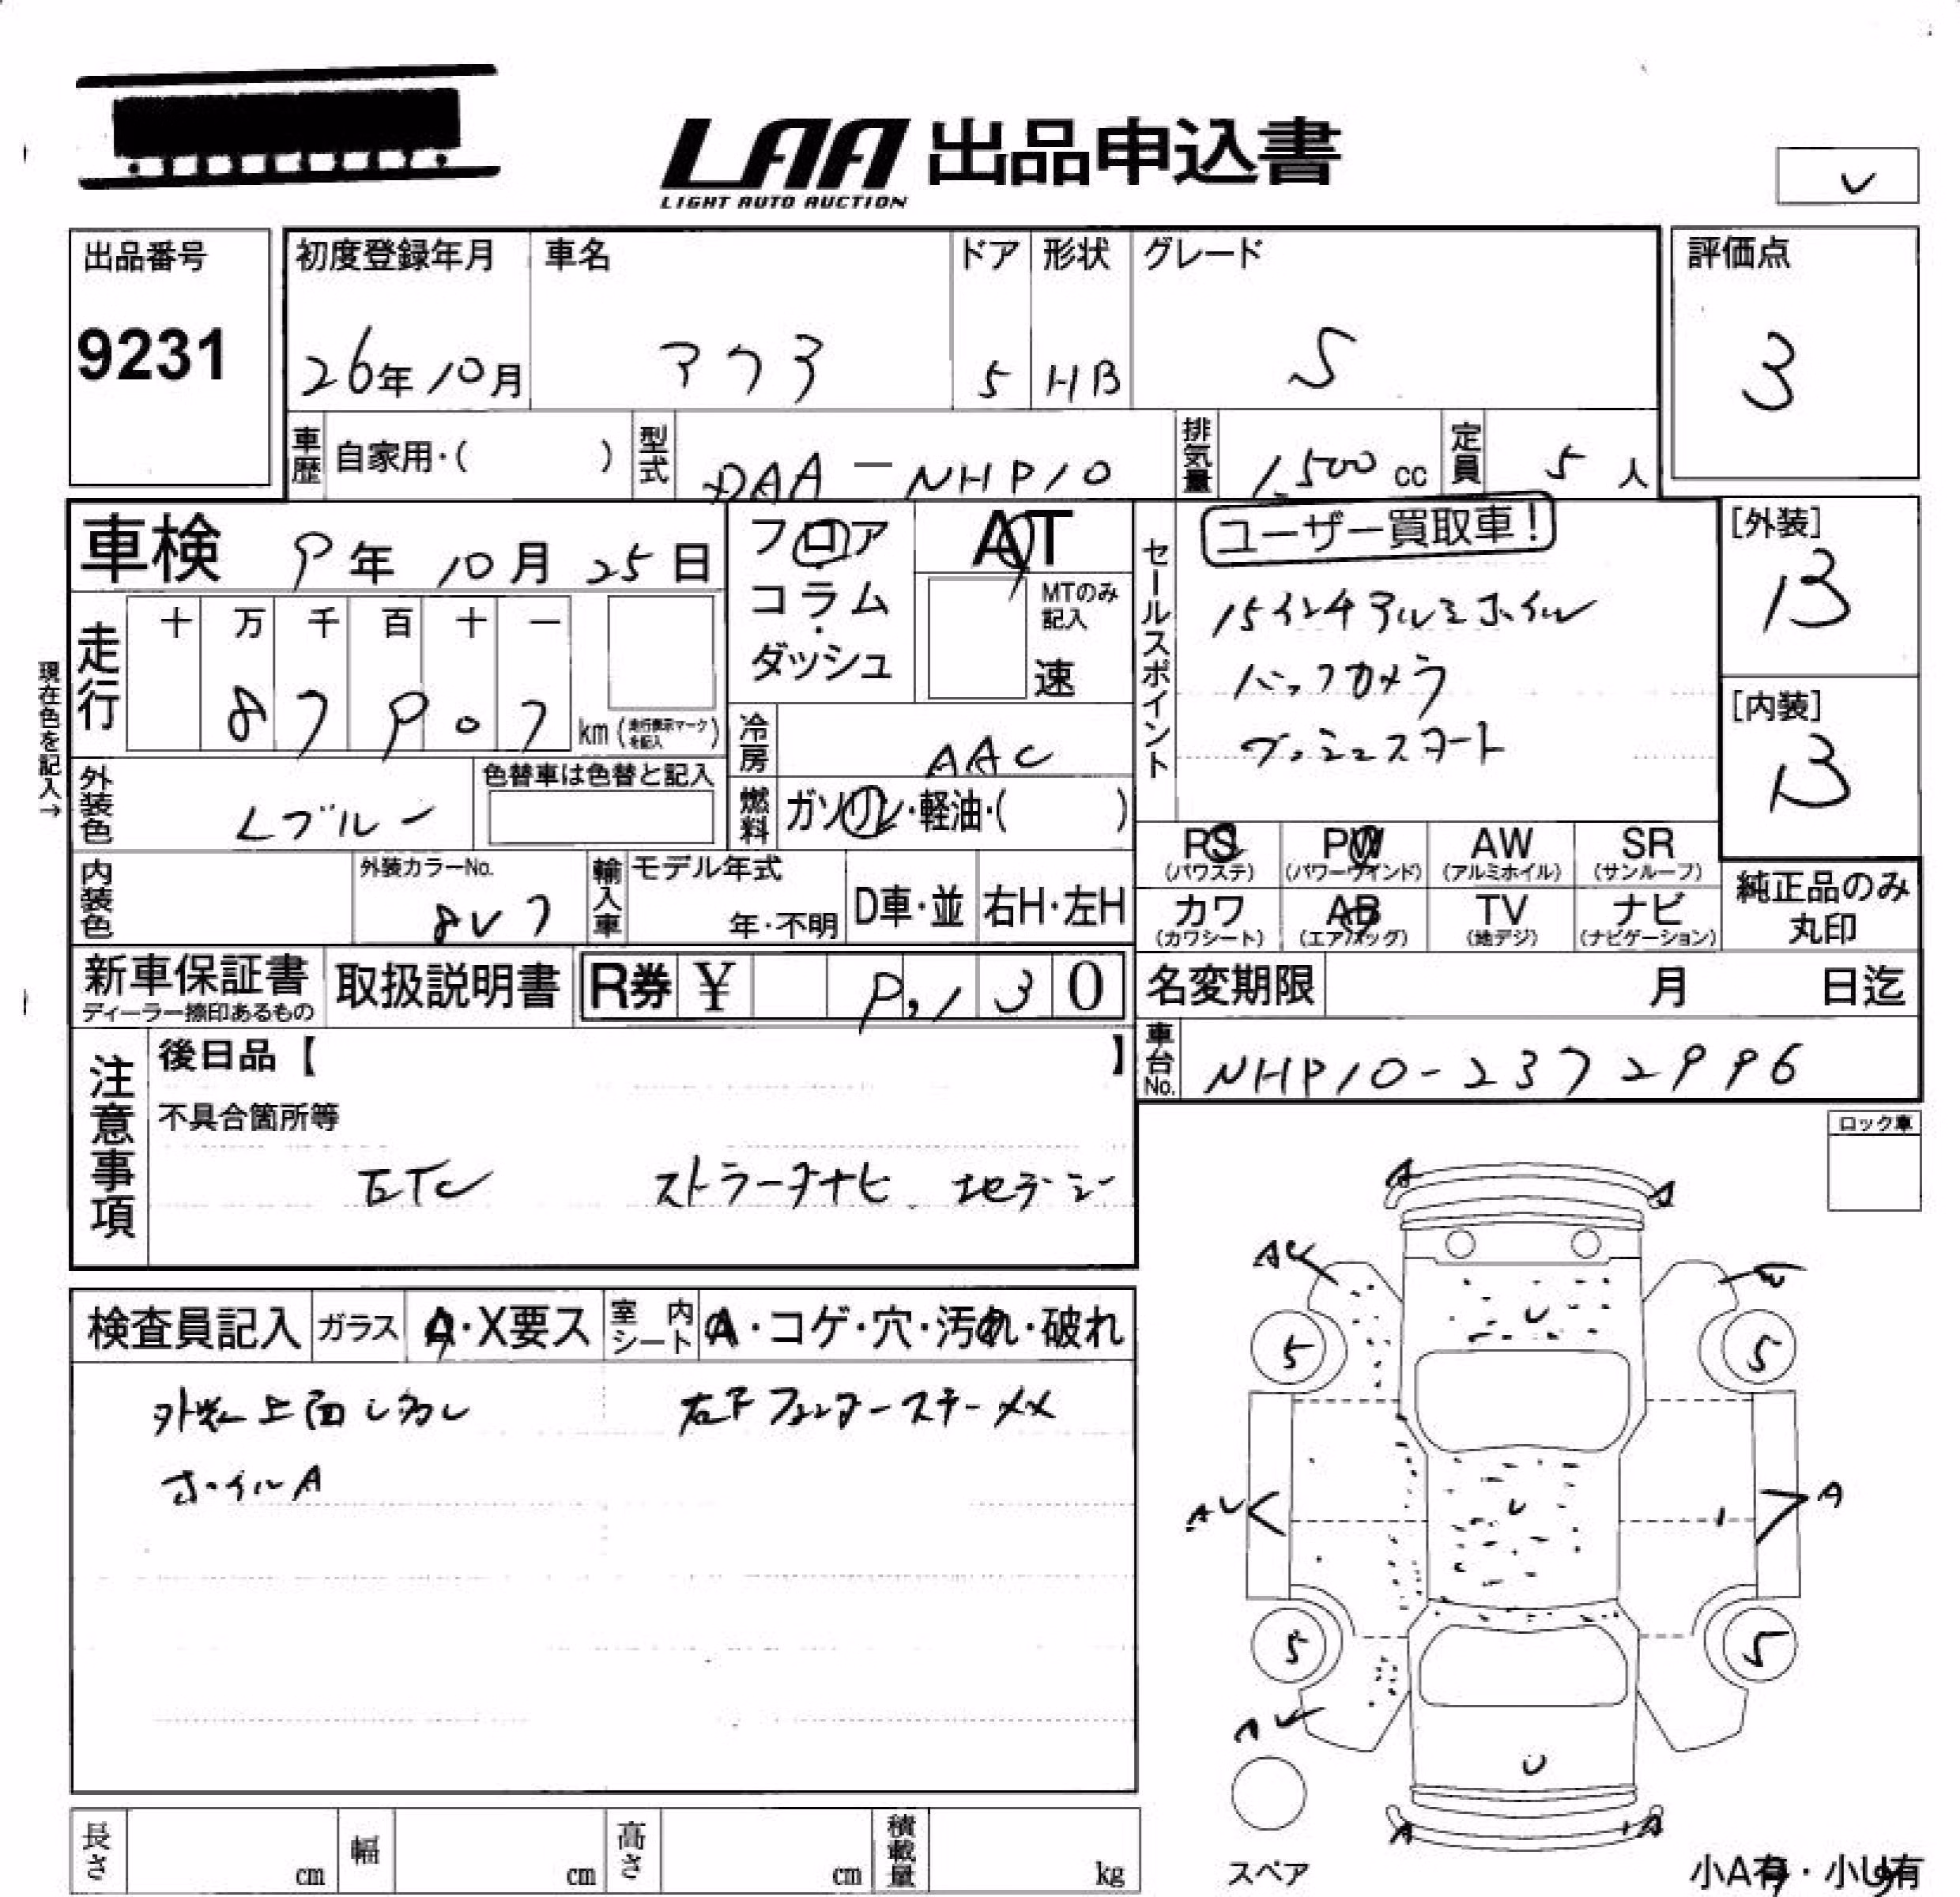 LAA 出品申込書
LIGHT AUTO AUCTION
出品番号
9231
初度登録年月
26年10月
車名
アクア
ドア
5
形状
HB
グレード
S
評価点
3
車歴
自家用・( )
型式
DAA-NHP10
排気量
1,500 cc
定員
5人
車検
9年10月25日
フロア
コラム・
ダッシュ
AT
MTのみ
記入
速
セールスポイント
ユーザー買取車!
15インチアルミホイル
バックカメラ
プッシュスタート
[外装]
B
[内装]
B
現在色を記入→
走行
十 万 千 百 十 一
8 7 9 0 7
km (走行表示マークを記入)
冷房
AAC
燃料
ガソリン・軽油・( )
外装色
Lブルー
色替車は色替と記入
内装色
外装カラーNo.
8V7
輸入車
モデル年式
年・不明
D車・並
右H・左H
PS
(パワステ)
PW
(パワーウインド)
AW
(アルミホイル)
SR
(サンルーフ)
カワ
(カワシート)
AB
(エアバッグ)
TV
(地デジ)
ナビ
(ナビゲーション)
純正品のみ
丸印
新車保証書
ディーラー捺印あるもの
取扱説明書
R券 ¥ 9,130
名変期限
月 日迄
車台No.
NHP10-2372996
注意事項
後日品【 】
不具合箇所等
ETC ストラーダナビ 地デジ
ロック車
検査員記入
ガラス
A・X要ス
室内
シート
A・コゲ・穴・汚れ・破れ
ホイルA
A
A
AU
U
U
5
5
AU
U
A
5
5
AU
U
A
A
スペア
長さ
cm
幅
cm
高さ
cm
積載量
kg
小A有・小U有